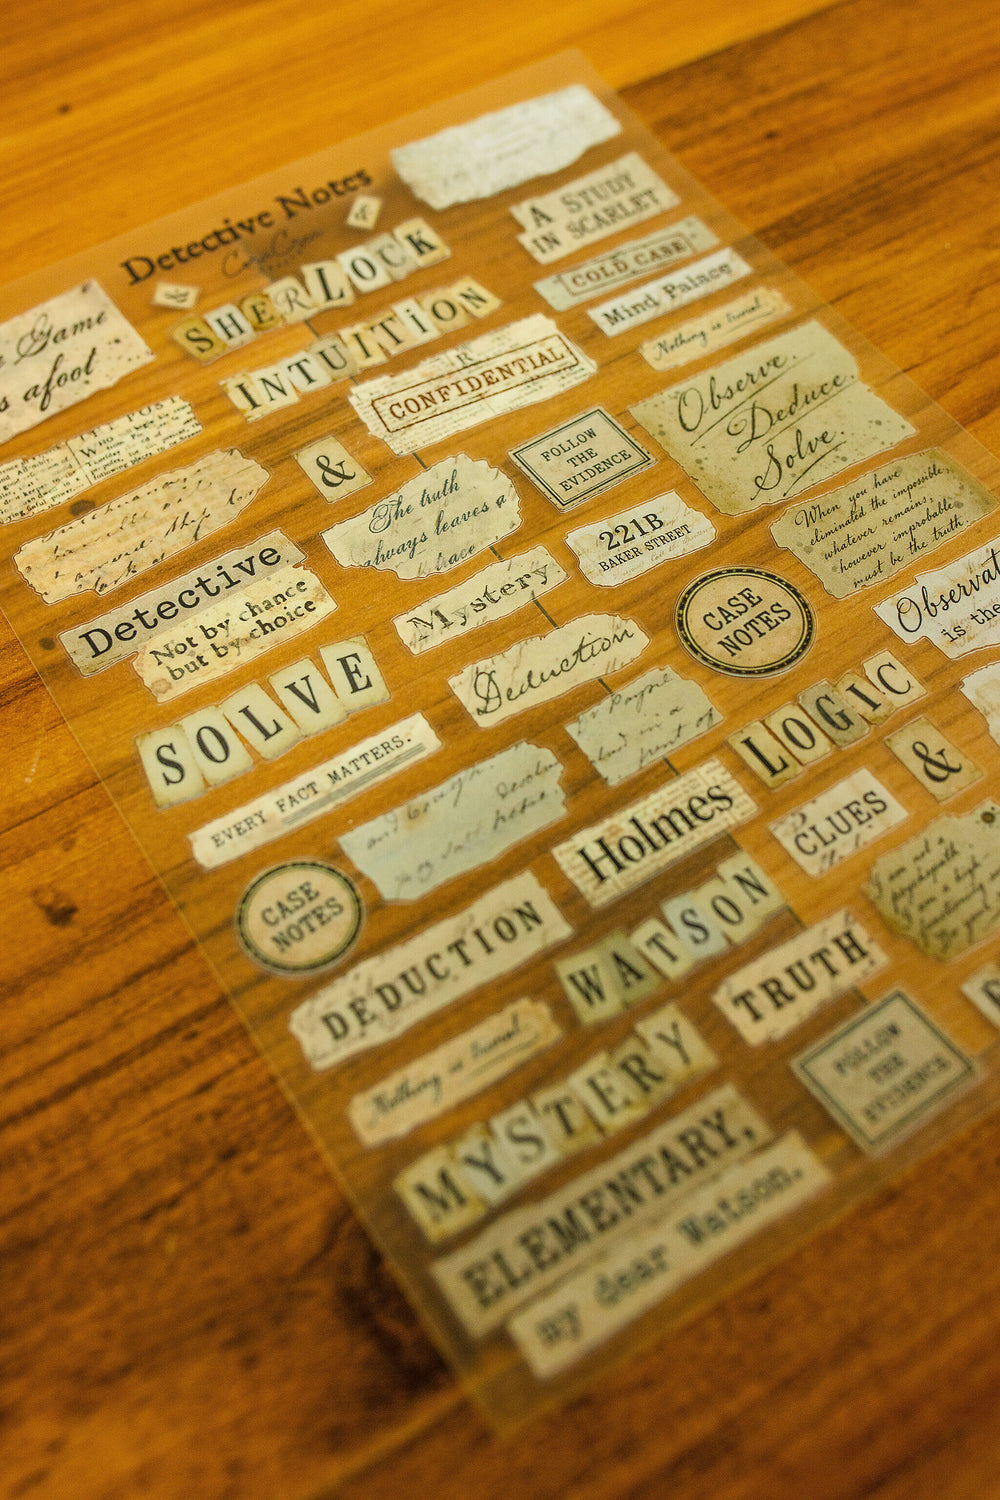 Detective Notes
&
&
SHERLOCK
INTUITION
Game
s afoot
A STUDY
IN SCARLET
COLD CASE
Mind Palace
Nothing is trivial.
CONFIDENTIAL
Observe.
Deduce.
Solve.
POST
WHO
&
FOLLOW
THE
EVIDENCE
The truth
always leaves a
trace
221B
BAKER STREET
When you have
eliminated the impossible,
whatever remains,
however improbable
must be the truth.
Detective
Not by chance
but by choice
Mystery
CASE
NOTES
Observat
is the
Deduction
SOLVE
LOGIC
&
EVERY FACT MATTERS.
Holmes
CLUES
CASE
NOTES
I am not a
psychopath.
I am a high-
functioning
Do your
DEDUCTION
WATSON
TRUTH
Nothing is trivial.
FOLLOW
THE
EVIDENCE
MYSTERY
ELEMENTARY,
my dear Watson.